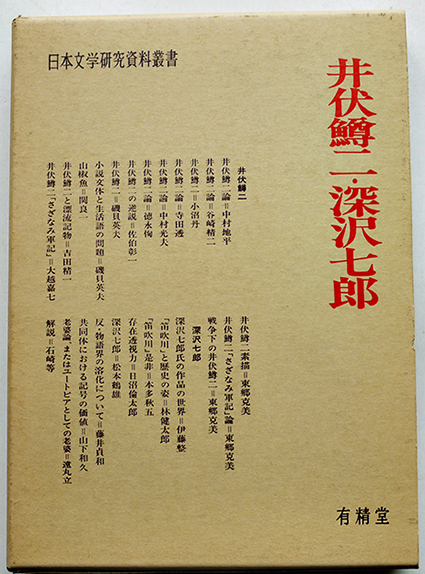 日本文学研究資料叢書
井伏鱒二・深沢七郎
井伏鱒二
井伏鱒二論=中村地平
井伏鱒二論=谷崎精二
井伏鱒二=小沼丹
井伏鱒二論=寺田透
井伏鱒二論=中村光夫
井伏鱒二論=徳永恂
井伏鱒二の逆説=佐伯彰一
井伏鱒二=磯貝英夫
小説文体と生活語の問題=磯貝英夫
山椒魚=関良一
井伏鱒二と漂流記物=吉田精一
井伏鱒二「さざなみ軍記」=大越嘉七
井伏鱒二素描=東郷克美
井伏鱒二「さざなみ軍記」論=東郷克美
戦争下の井伏鱒二=東郷克美
深沢七郎
深沢七郎氏の作品の世界=伊藤整
「笛吹川」と歴史の姿=林健太郎
「笛吹川」是非=本多秋五
存在透視力=日沼倫太郎
深沢七郎=松本鶴雄
反・物語界の溶化について=藤井貞和
共同体における記号の価値=山下和久
老婆論、またはユートピアとしての老婆=遠丸立
解説=石崎等
有精堂